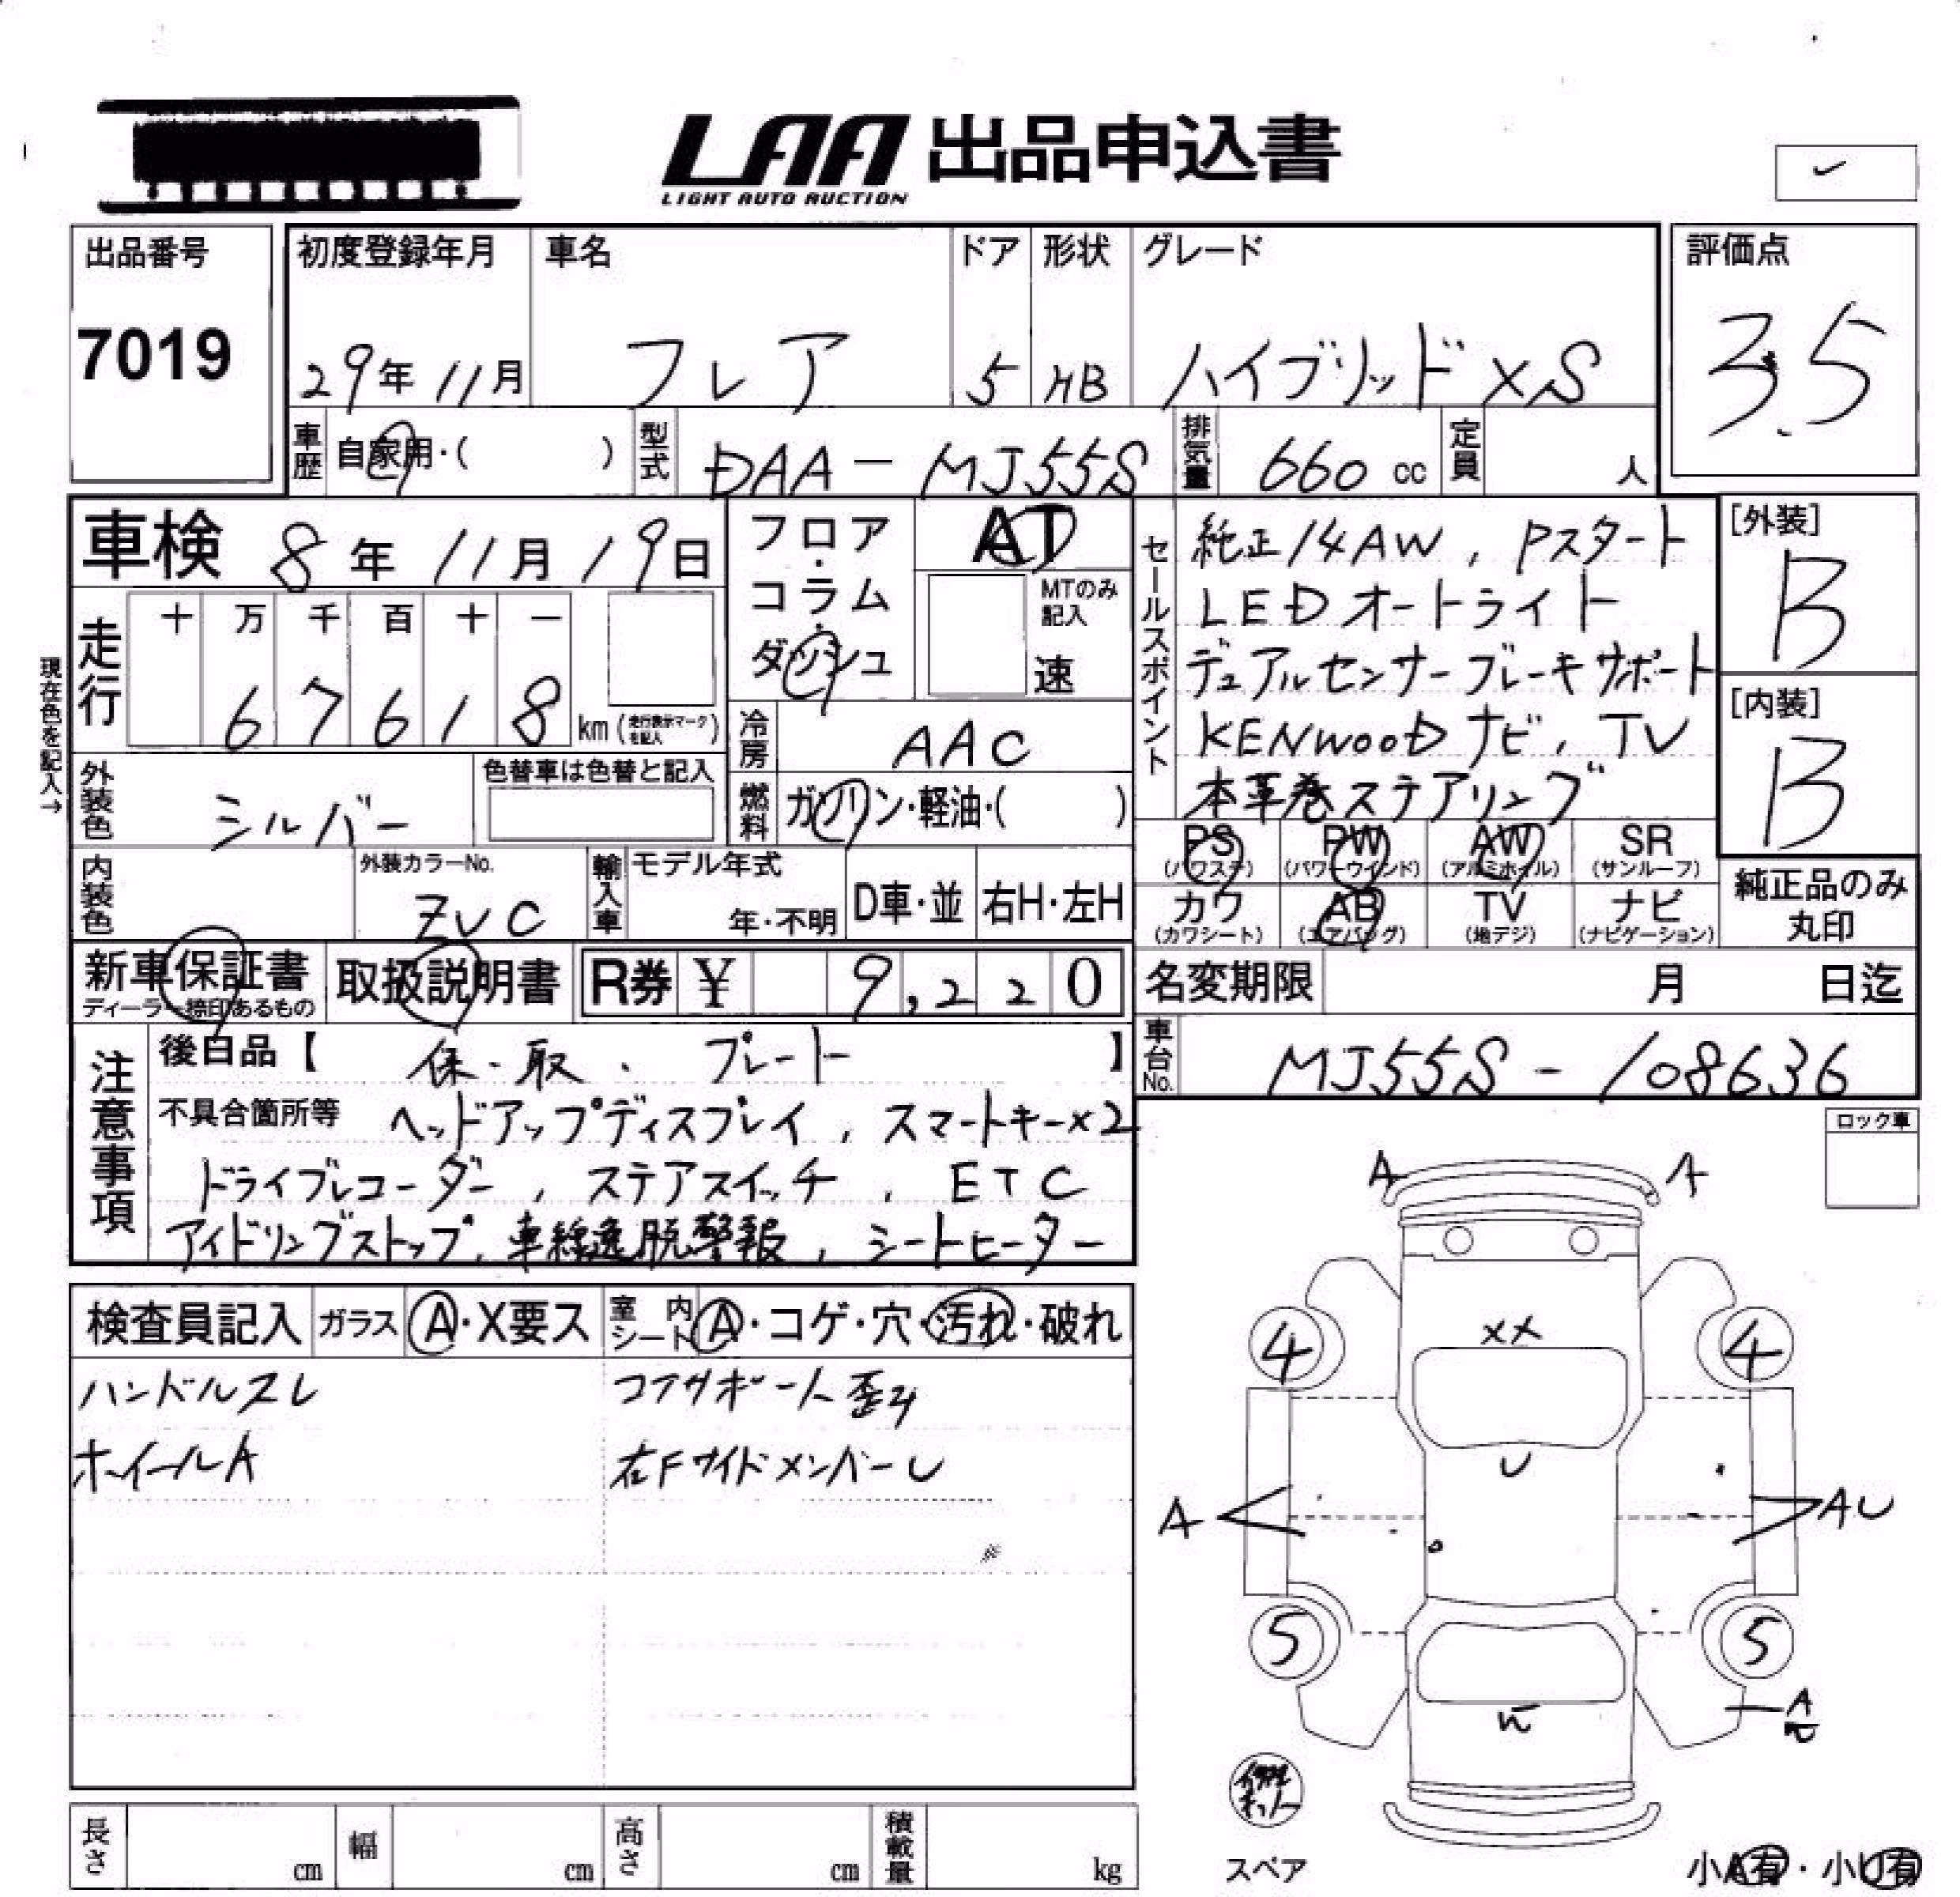 LAA 出品申込書
LIGHT AUTO AUCTION
出品番号
7019
初度登録年月
29年11月
車名
フレア
ドア
5
形状
HB
グレード
ハイブリッドXS
評価点
3.5
車歴 自家用・( )
型式 DAA-MJ55S
排気量 660cc
定員 人
車検 8年11月19日
フロア・コラム・ダッシュ
AT
MTのみ記入
速
現在色を記入→
走行
十 万 千 百 十 一
6 7 6 1 8 km (走行表示マークを記入)
冷房 AAC
燃料 ガソリン・軽油・( )
外装色 シルバー
色替車は色替と記入
内装色
外装カラーNo.
ZVC
輸入車
モデル年式
年・不明
D車・並
右H・左H
セールスポイント
純正14AW, Pスタート
LEDオートライト
デュアルセンサーブレーキサポート
KENWOODナビ, TV
本革巻ステアリング
[外装]
B
[内装]
B
PS (パワステ)
PW (パワーウインド)
AW (アルミホイル)
SR (サンルーフ)
カワ (カワシート)
AB (エアバッグ)
TV (地デジ)
ナビ (ナビゲーション)
純正品のみ丸印
新車保証書
ディーラー捺印あるもの
取扱説明書
R券 ¥ 9,220
名変期限 月 日迄
車台No. MJ55S-108636
注意事項
後日品【 保・取、プレート 】
不具合箇所等 ヘッドアップディスプレイ, スマートキー×2
ドライブレコーダー, ステアスイッチ, ETC
アイドリングストップ, 車線逸脱警報, シートヒーター
ロック車
検査員記入
ガラス A・X要ス
室内シート A・コゲ・穴・汚れ・破れ
ハンドルスレ
ホイールA
コアサポート歪み
右FサイドメンバーU
A A
4 XX 4
U
A AU
5 5
W A
スペア
小A有・小U有
長さ cm
幅 cm
高さ cm
積載量 kg